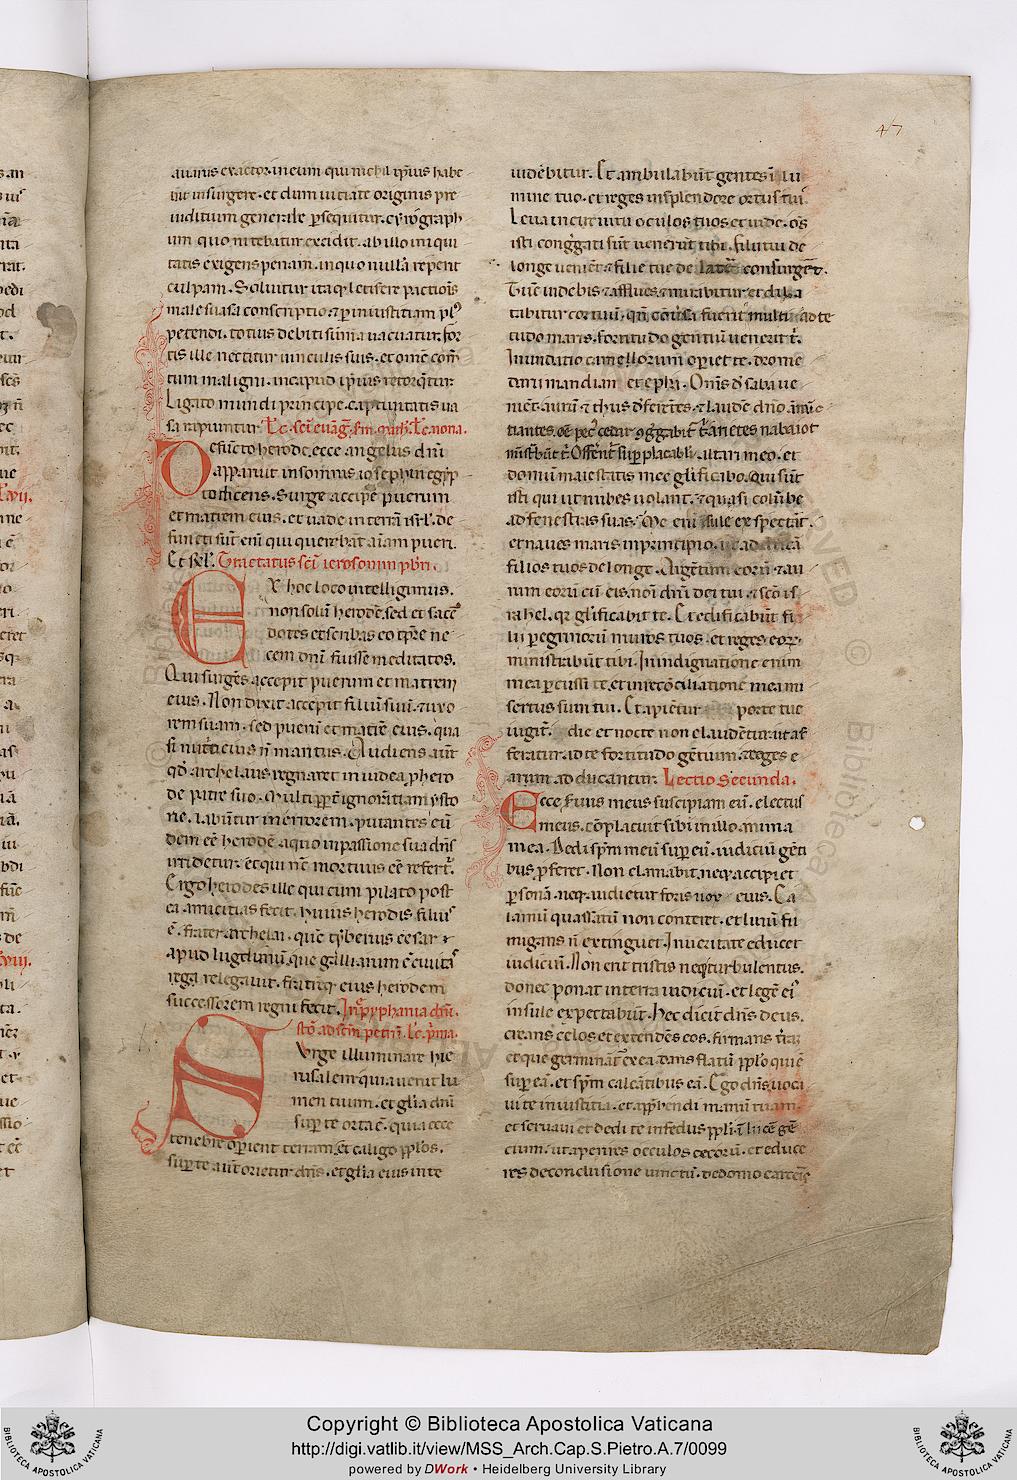 47
auarus exactor. in eum qui nichil ip̅ius habe
bat insurgere. et dum uitiate originis pre
iuditium generale p̲sequitur. cyrograph
um quo nitebatur excidit. ab illo iniqui
tatis exigens penam. in quo nullā reperit
culpam. Soluitur itaq; letifere pactionis
male suasa conscriptio. ⁊ p̲ iniustitiam plꝰ
petendi. totius debiti sūma uacuatur. for
tis ille nectitur uinculis suis. et om̄e com̄
tum maligni. in capud ip̄ius retorq̄tur.
Ligato mundi principe. captiuitatis ua
sa rapiuntur. Lc̄. sc̄i euāg̅. s̄m matħ. Lc̄. nona.
Defūcto herode. ecce angelus dn̄i
apparuit in somnis ioseph in egyp
to dicens. Surge accipe puerum
et matrem eius. et uade in terrā isrl̄. de
functi sūt eni̅ qui querebāt aīam pueri.
Et rel̄. Tractatus sc̄i ieronimi pb̄ri.
EX hoc loco intelligimus.
non solū herodē. sed et sacer
dotes et scribas eo tp̄re ne
cem dn̄i fuisse meditatos.
Qui surgēs accepit puerum et matrem
eius. Non dixit accepit filiū suū. ⁊ uxo
rem suam. sed puerū et matrē eius. qua
si nutritius n̄ maritus. Audiens aūt
qd̄ archelaus regnaret in iudea p̲ hero
de patre suo. Multi ppt̄ ignorātiam ysto
rie. labūntur in errorem. putantes eū
dem eē herodē a quo in passione sua dn̄s
irridetur. et qui nc̄ mortuus eē refert̄.
Ergo herodes ille qui cum pilato post
ea amicitias fecit. huius herodis filius
ē. frater archelai. quē tyberius cesar
apud lugdunū. que galliarum ē ciuitas
relegauit. fratrēq; eius herodem
successorem regni fecit. In epyphania dn̄i.
stō. ad sc̄m petrū. Lc̄. p̄ma.
Surge illuminare hie
rusalem quia uenit lu
men tuum. et gl̄ia dn̄i
sup̲ te orta ē. quia ecce
tenebre op̲ient terram. et caligo pp̄los.
sup̲ te aūt orietur dn̄s. et gl̄ia eius in te
uidebitur. Et ambulabūt gentes ī lu
mine tuo. et reges in splendore ortus tui.
Leua in circuitu oculos tuos et uide. om̄s
isti cong̅gati sūt uenerūt tibi. filii tui de
longe uenient ⁊ filie tue de latere consurgēt.
Tunc uidebis ⁊ afflues. ⁊ mirabitur et dila
tabitur cor tuū. qn̄ conu̅sa fuerit multitudo ad te
tudo maris. fortitudo gentiū uenerit t̄.
Inundatio camellorum op̲iet te. drome
darii madian et epha. Om̄s d̄ saba ue
nient. aurū ⁊ thus d̄ferētes. ⁊ laudē dn̄o annū
tiantes. om̄e pec̅ cedar cōg̅gabit̄ t̄. arietes nabaiot
ministrabūt t̄. Offerēt̄ sup̲ placabili altari meo. et
domum maiestatis mee glificabo. Qui sūt
isti qui ut nubes uolant. ⁊ quasi colūbe
ad fenestras suas. Me eni̅ insule expectāt.
et naues maris in principio. ut adducā
filios tuos de longe. Argētum eorū ⁊ au
rum eorū cū eis. noī dn̄i dei tui. ⁊ sc̄o is
rahel. qr̄ glificabit te. Et edificabūt fi
lii peregrinorū muros tuos. et reges eorꝝ
ministrabūt tibi. In indignatione enim
mea p̲cussi te. et in recōciliatione mea mi
sertus sum tui. Et apiētur porte tue
iugit̄. die et nocte non claudētur. ut af
feratur ad te fortitudo gētium. ⁊ reges e
arum adducantur. Lectio Secunda.
Ecce seruus meus suscipiam eū. electus
meus. cōplacuit sibi in illo anima
mea. Dedi sp̄m meū sup̲ eū. iudiciū genti
bus p̄feret. Non clamabit. neq; accipiet
p̲sonā. neq; audietur foris uox eius. Ca
lamū quassatū non conteret. et linū fu
migans n̄ extinguet. In ueritate educet
iudiciū. Non erit tristis neq; turbulentus.
donec ponat in terra iudiciū. et legē eiꝰ
insule expectabūt. Hec dicit dn̄s deus.
creans celos et extendēs eos. firmans t̄rā
et que germinant̄ ex ea. dans flatū pp̄lo qui ē
sup̲ eā. et sp̄m calcātibus eā. Ego dn̄s uoca
ui te in iustitia. et app̄hendi manū tuam.
et seruaui et dedi te in fedus pp̄li. ī lucē gē
tium. ut aperires occulos cecorū. et educe
res de conclusione uinctū. de domo carceris
Copyright © Biblioteca Apostolica Vaticana
http://digi.vatlib.it/view/MSS_Arch.Cap.S.Pietro.A.7/0099
powered by DWork • Heidelberg University Library